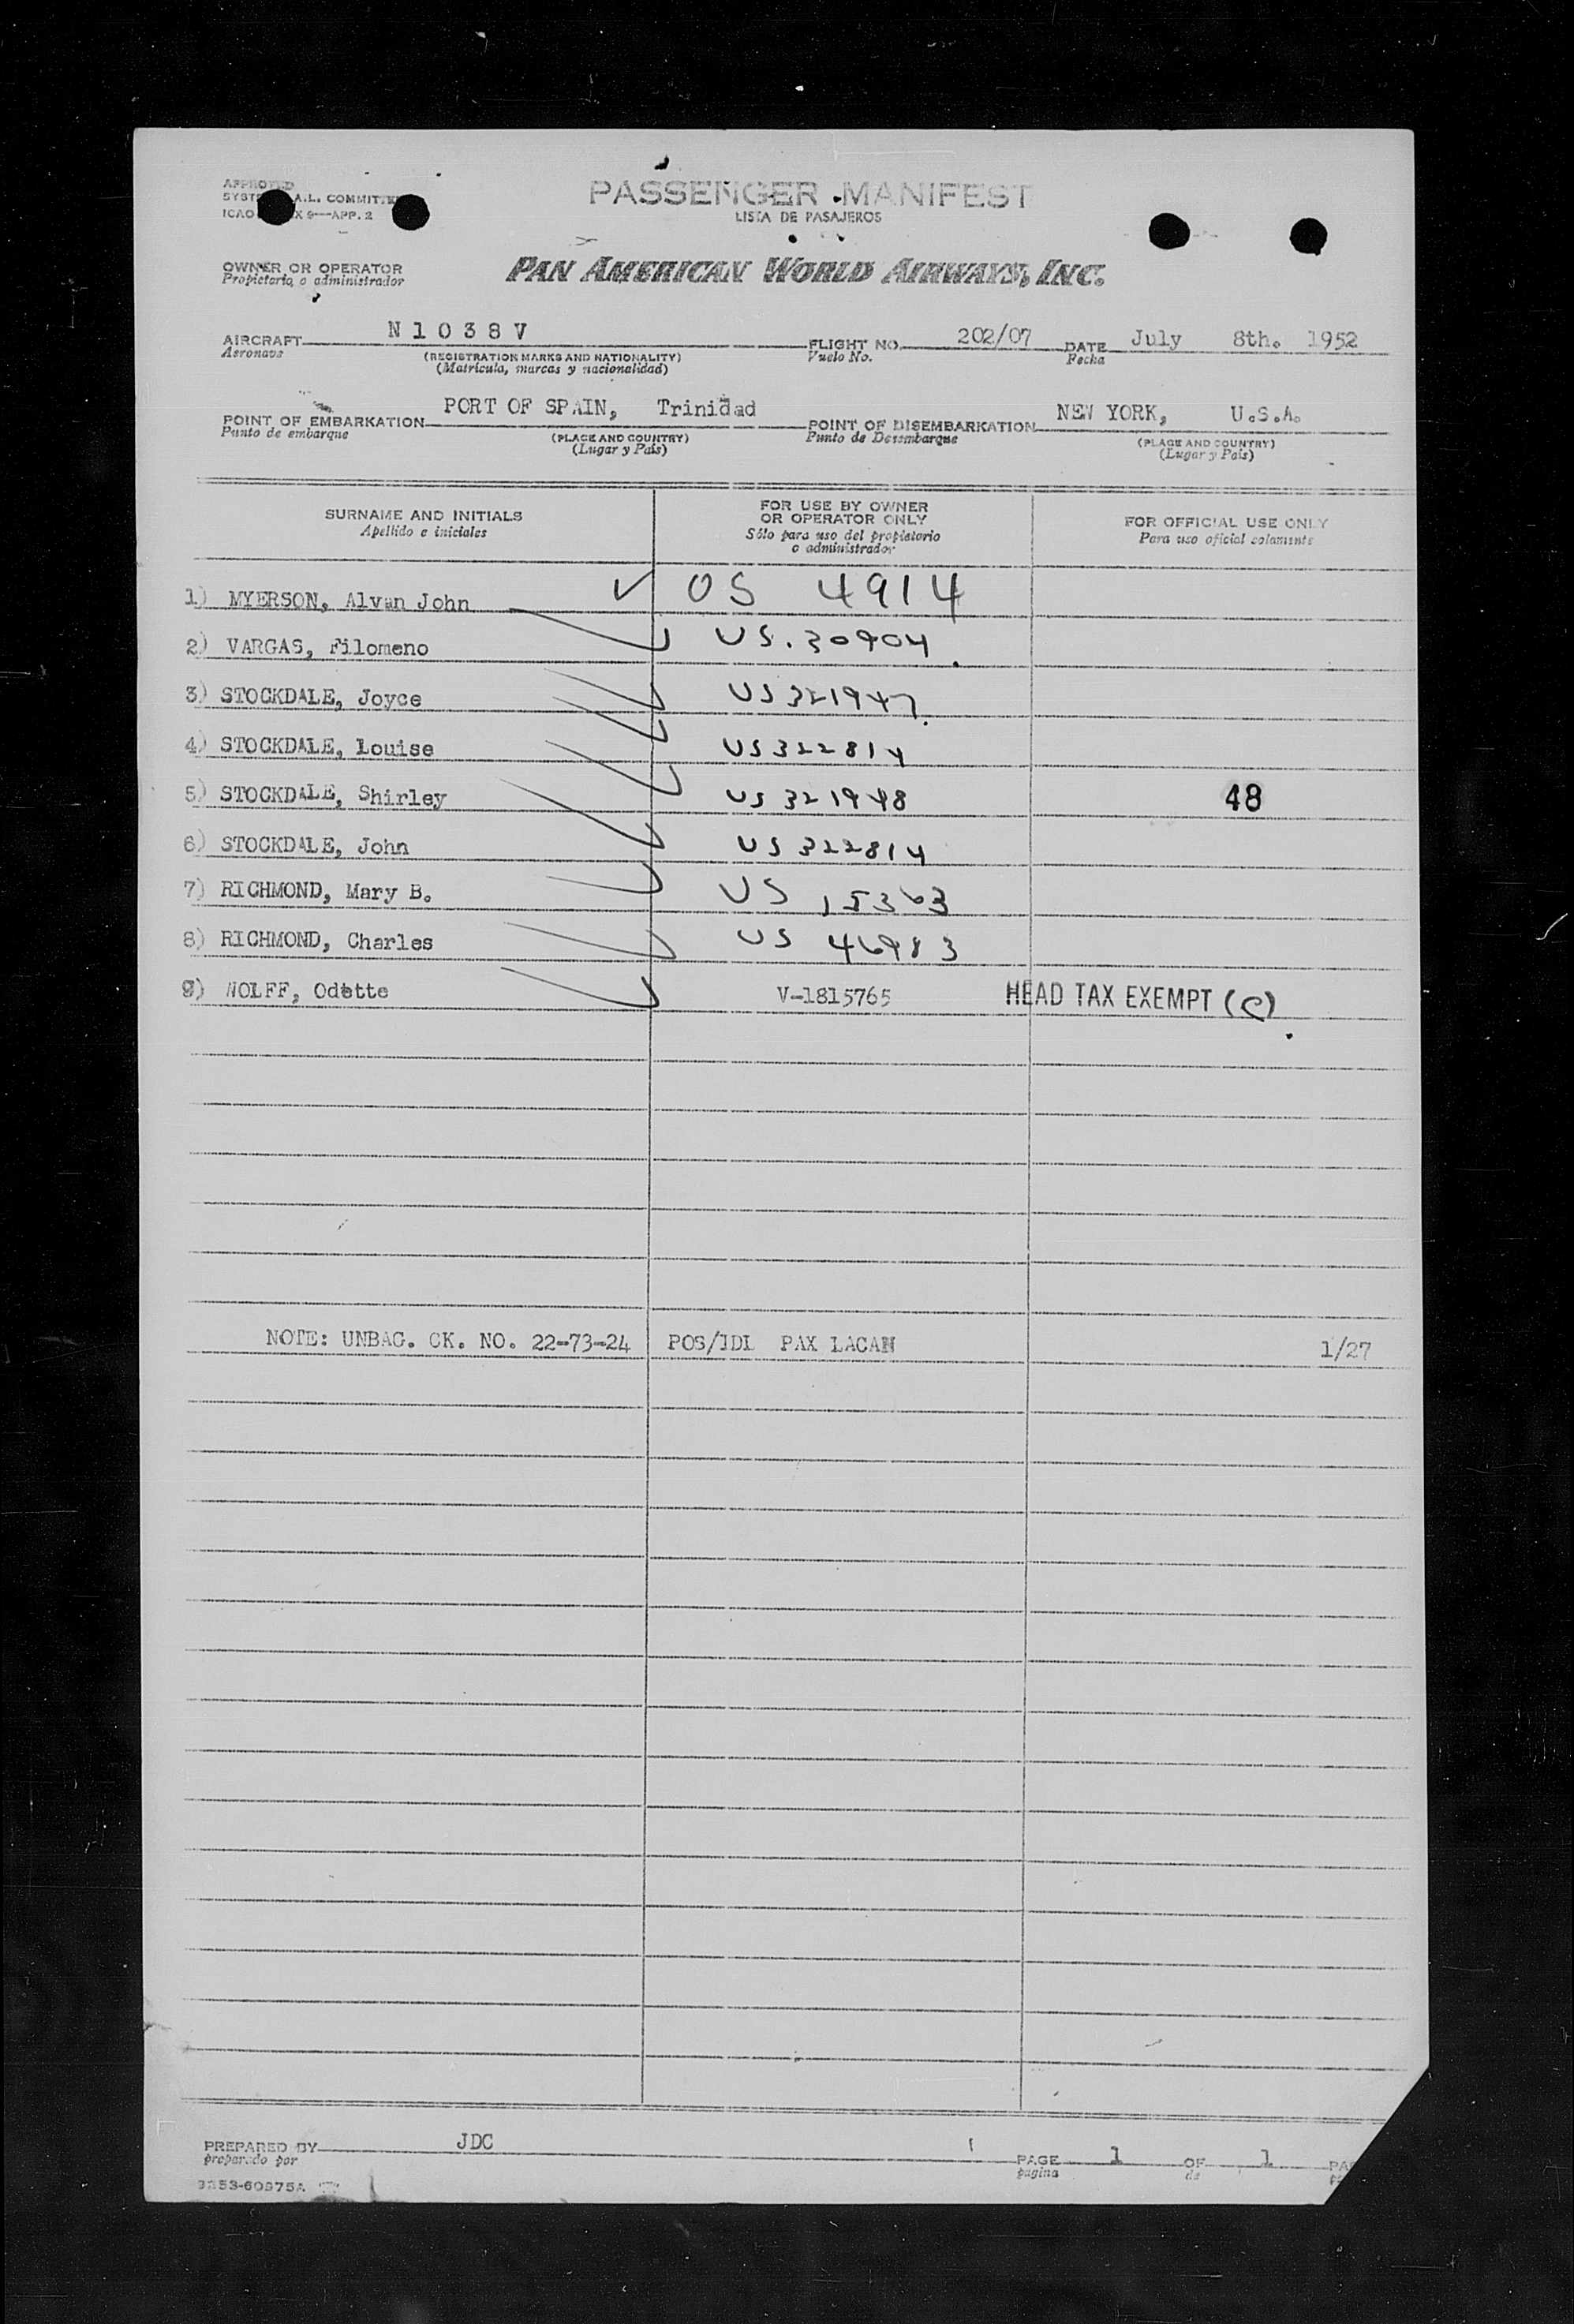 APPROVED
PASSENGER MANIFEST
SYST A.L. COMMITTE
LISTA DE PASAJEROS
ICAO X 9—APP. 2
OWNER OR OPERATOR
Propietario o administrador
PAN AMERICAN WORLD AIRWAYS, INC.
AIRCRAFT N 1 0 3 8 V FLIGHT NO. 202/07 DATE July 8th. 1952
Aeronave (REGISTRATION MARKS AND NATIONALITY) Vuelo No. Fecha
(Matrícula, marcas y nacionalidad)
POINT OF EMBARKATION PORT OF SPAIN, Trinidad POINT OF DISEMBARKATION NEW YORK, U.S.A.
Punto de embarque (PLACE AND COUNTRY) Punto de Desembarque (PLACE AND COUNTRY)
(Lugar y País) (Lugar y País)
SURNAME AND INITIALS
Apellido e iniciales
FOR USE BY OWNER
OR OPERATOR ONLY
Sólo para uso del propietario
o administrador
FOR OFFICIAL USE ONLY
Para uso oficial solamente
1) MYERSON, Alvan John OS 4914
2) VARGAS, Filomeno US. 30904
3) STOCKDALE, Joyce US 321947
4) STOCKDALE, Louise US 322814
5) STOCKDALE, Shirley US 321948 48
6) STOCKDALE, John US 322814
7) RICHMOND, Mary B. US 15363
8) RICHMOND, Charles US 46983
9) WOLFF, Odette V-1815765 HEAD TAX EXEMPT (C)
NOTE: UNBAG. CK. NO. 22-73-24 POS/IDL PAX LACAN 1/27
PREPARED BY JDC PAGE 1 OF 1
preparado por pagina de